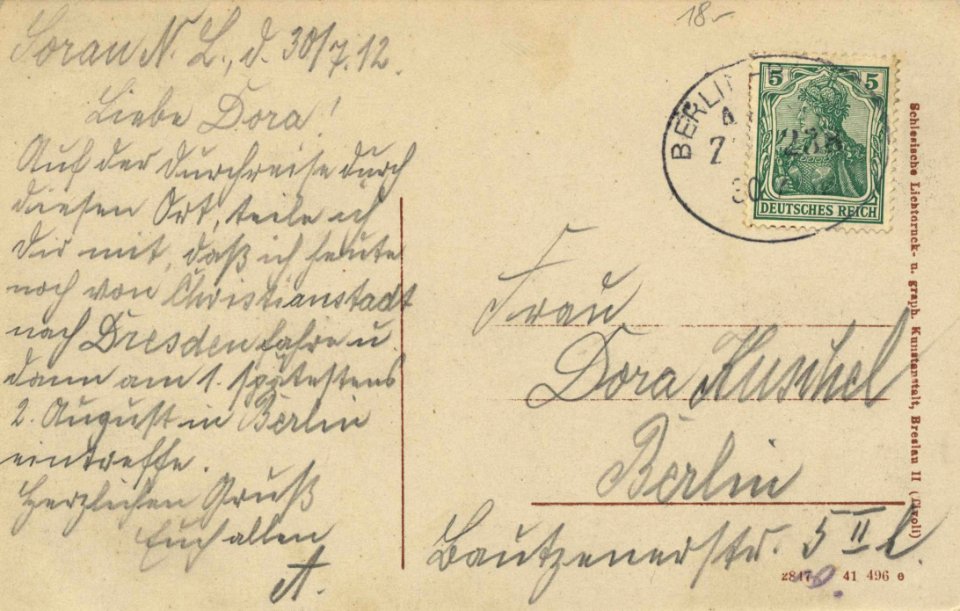 18-
Sorau N. L., d. 30/7.12.
Liebe Dora!
Auf der Durchreise durch
diesen Ort, teile ich
Dir mit, daß ich heute
noch von Christianstadt
nach Dresden fahre u.
dann am 1. spätestens
2. August in Berlin
eintreffe.
Herzlichen Gruß
Euch allen
A.
BERLIN
238
5 5
DEUTSCHES REICH
Frau
Dora Kuschel
Berlin
Bautzenerstr. 5 II l.
Schlesische Lichtdruck- u. graph. Kunstanstalt, Breslau II (Tivoli)
41 496 e